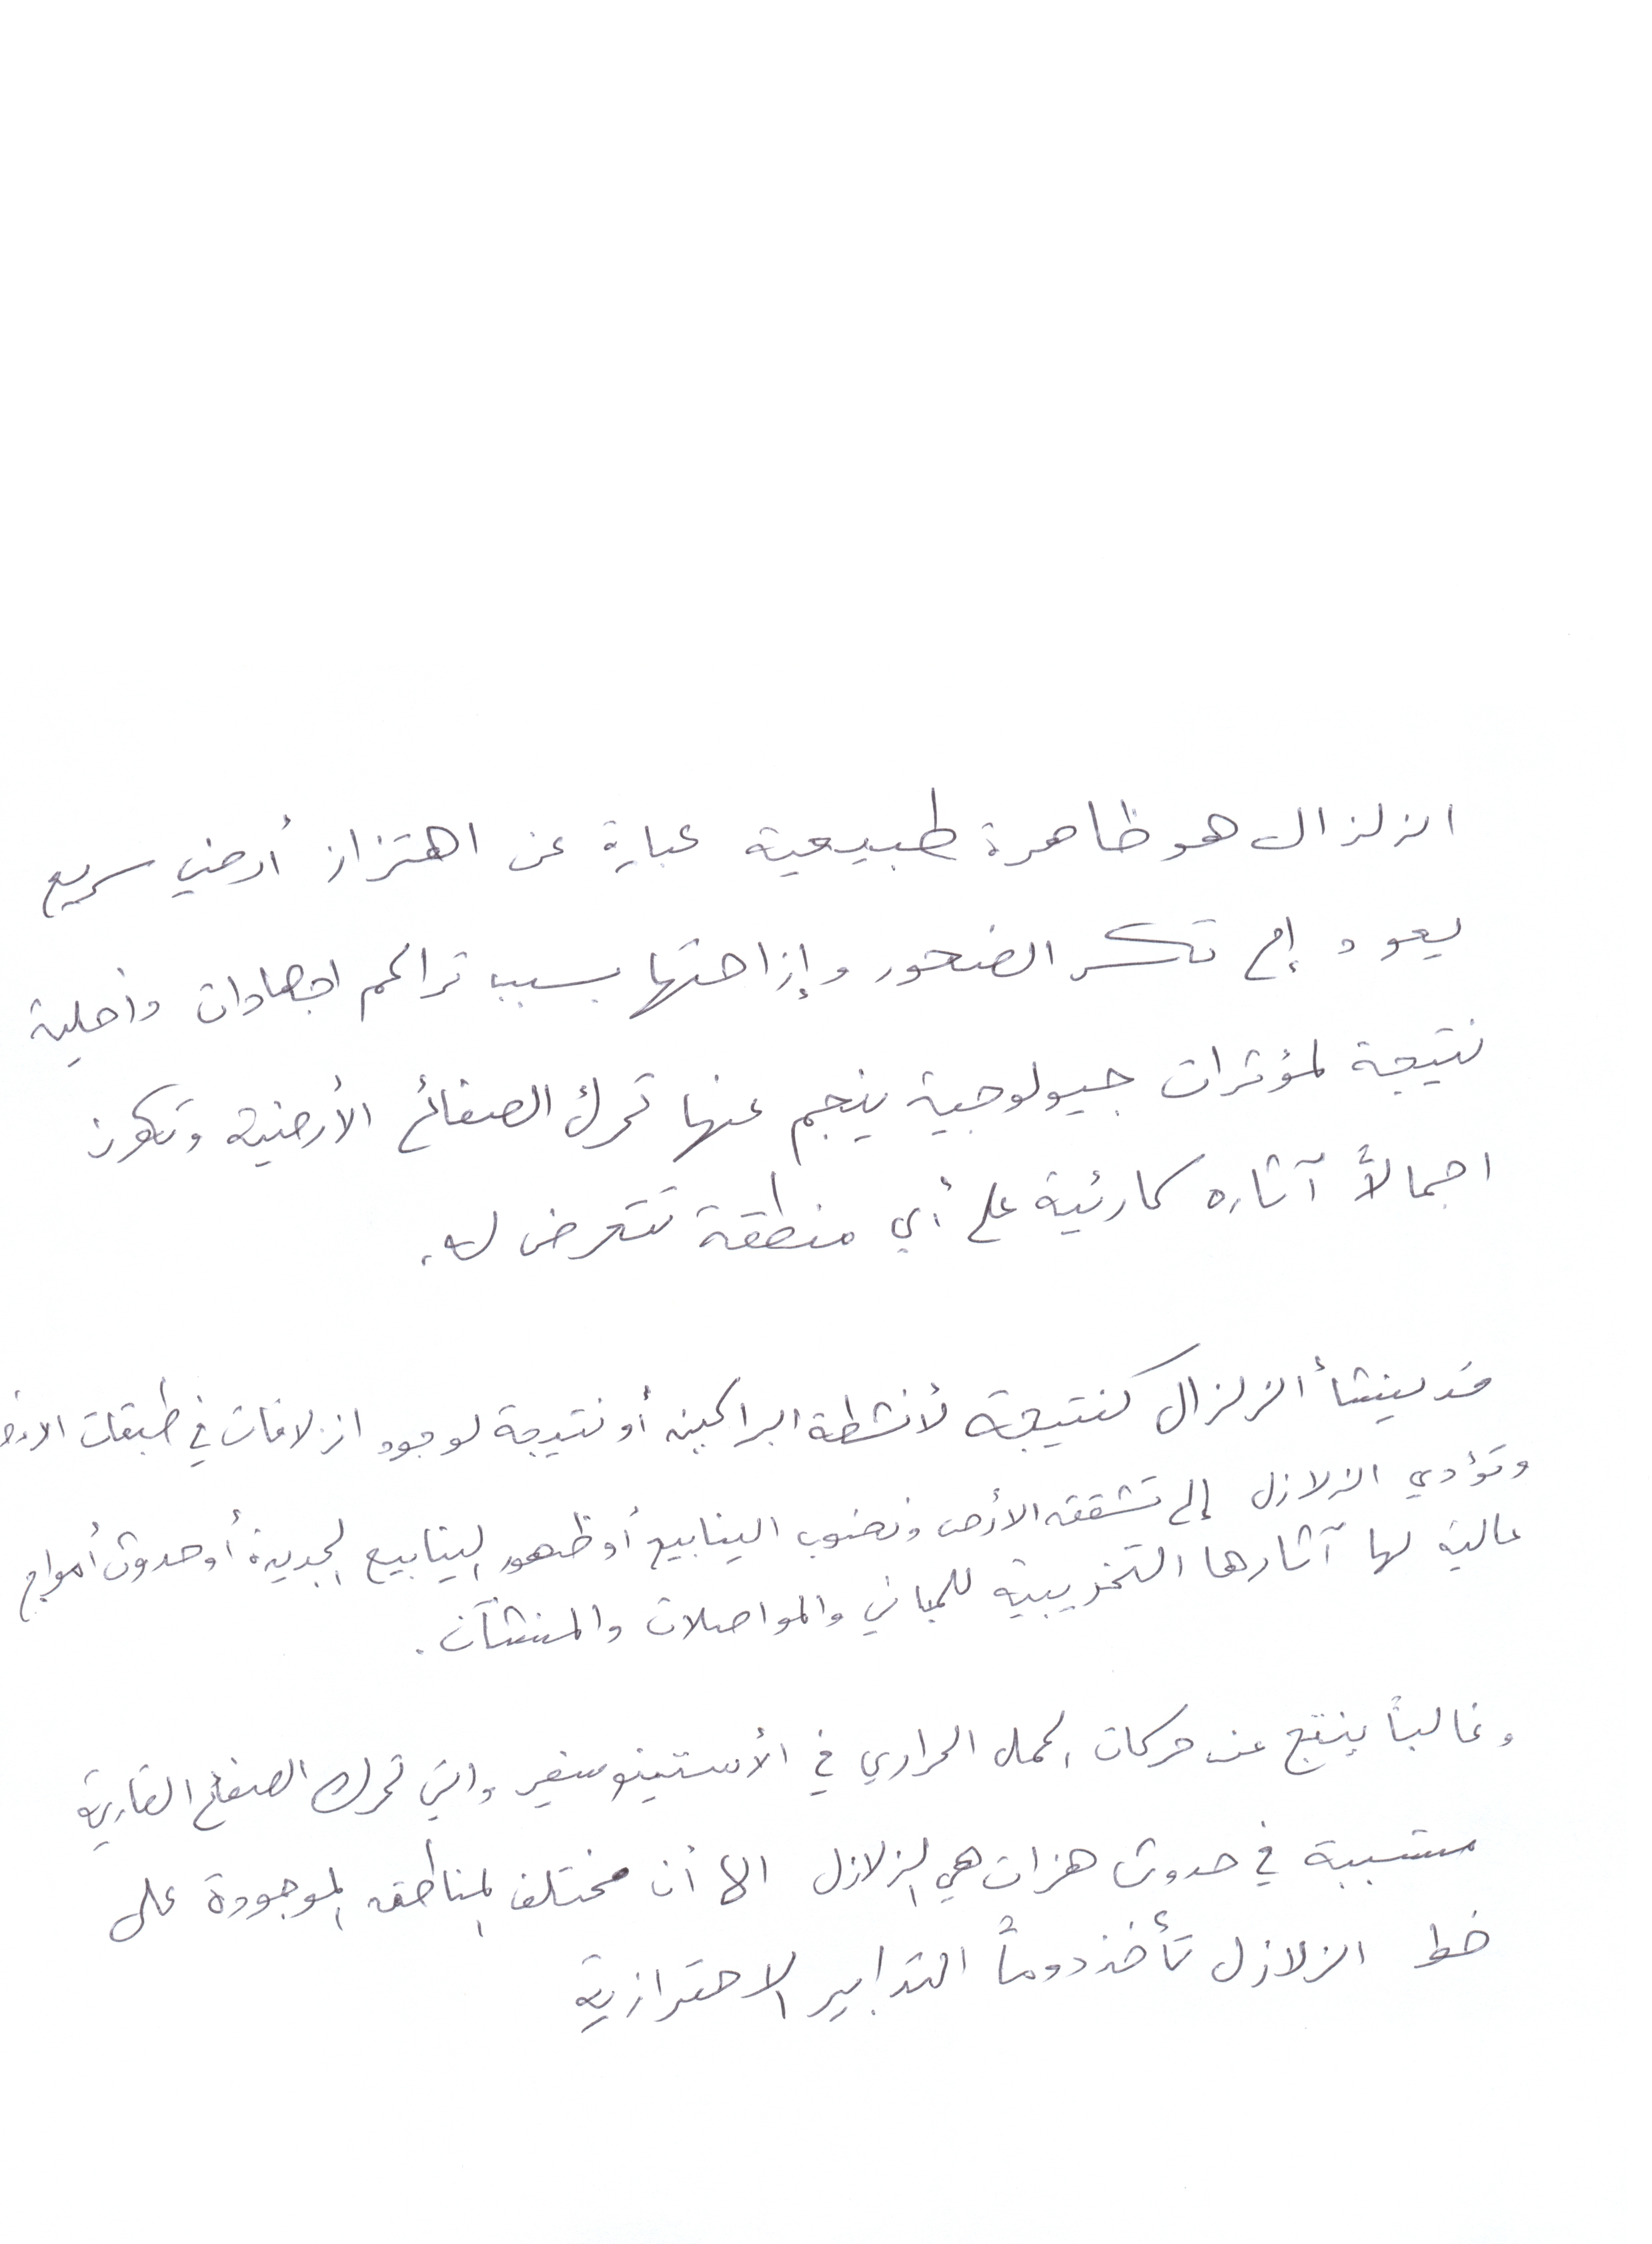 الزلزال هو ظاهرة طبيعية عبارة عن اهتزاز أرضي سريع
يعود إلى تكسر الصخور وإزاحتها بسبب تراكم اجهادات داخلية
نتيجة لمؤثرات جيولوجية ينجم عنها تحرك الصفائح الأرضية وتكون
اجمالاً آثاره كارثية على أي منطقة تتعرض له.
قد ينشأ الزلزال كنتيجة لأنشطة البراكين أو نتيجة لوجود انزلاقات في طبقات الارض
وتؤدي الزلازل إلى تشقق الأرض ونضوب الينابيع أو ظهور الينابيع الجديدة أو حدوث أمواج
عالية لها آثارها التخريبية للمباني والمواصلات والمنشآت.
وغالباً ينتج عن حركات الحمل الحراري في الأستينوسفير والتي تحرك الصفائح القارية
متسببة في حدوث هزات هي الزلازل الا أن مختلف المناطق الموجودة على
خط الزلازل تأخذ دوماً التدابير الاحترازية